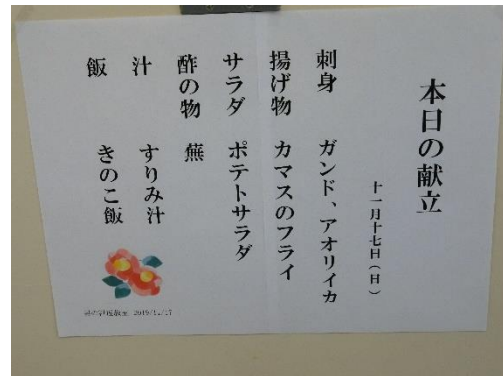 本日の献立
十一月十七日(日)
刺身 ガンド、アオリイカ
揚げ物 カマスのフライ
サラダ ポテトサラダ
酢の物 蕪
汁 すりみ汁
飯 きのこ飯
2019/11/17